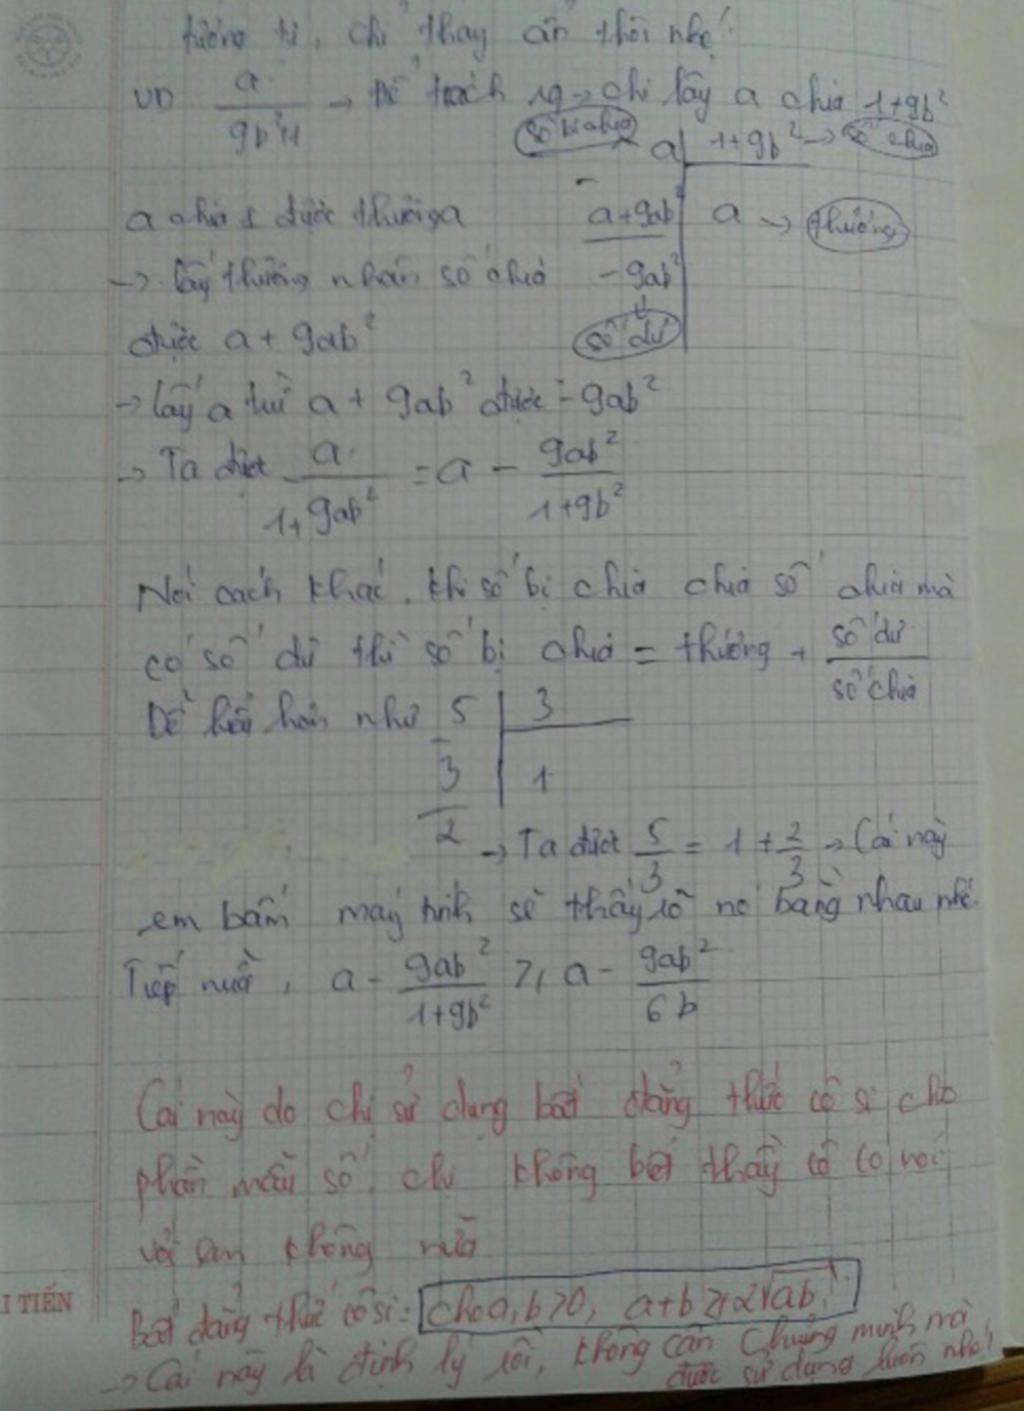 tương tự, chỉ thay ẩn thôi nhé!
VD a/(9b²+1) → Để tách ra → chị lấy a chia 1+9b²
số bị chia a | 1+9b² → số chia
a chia 1 được thương a - a+9ab² | a → thương
→ lấy thương nhân số chia - 9ab²
được a + 9ab² số dư
→ lấy a trừ a + 9ab² được - 9ab²
→ Ta được a/(1+9ab²) = a - 9ab²/(1+9b²)
Nói cách khác, khi số bị chia chia số chia mà
có số dư thì số bị chia = thương + số dư/số chia
Dễ hiểu hơn như 5 | 3
- 3 | 1
2 → Ta được 5/3 = 1 + 2/3 → Cái này
em bấm máy tính sẽ thấy rõ nó bằng nhau nhé.
Tiếp nữa, a - 9ab²/(1+9b²) ≥ a - 9ab²/6b
Cái này do chị sử dụng bất đẳng thức cô si cho
phần mẫu số, chị không biết thầy cô có nói
với em không nữa
Bất đẳng thức côsi: cho a,b ≥ 0, a+b ≥ 2√ab
→ Cái này là định lý rồi, không cần chứng minh mà
được sử dụng luôn nhé!
I TIẾN